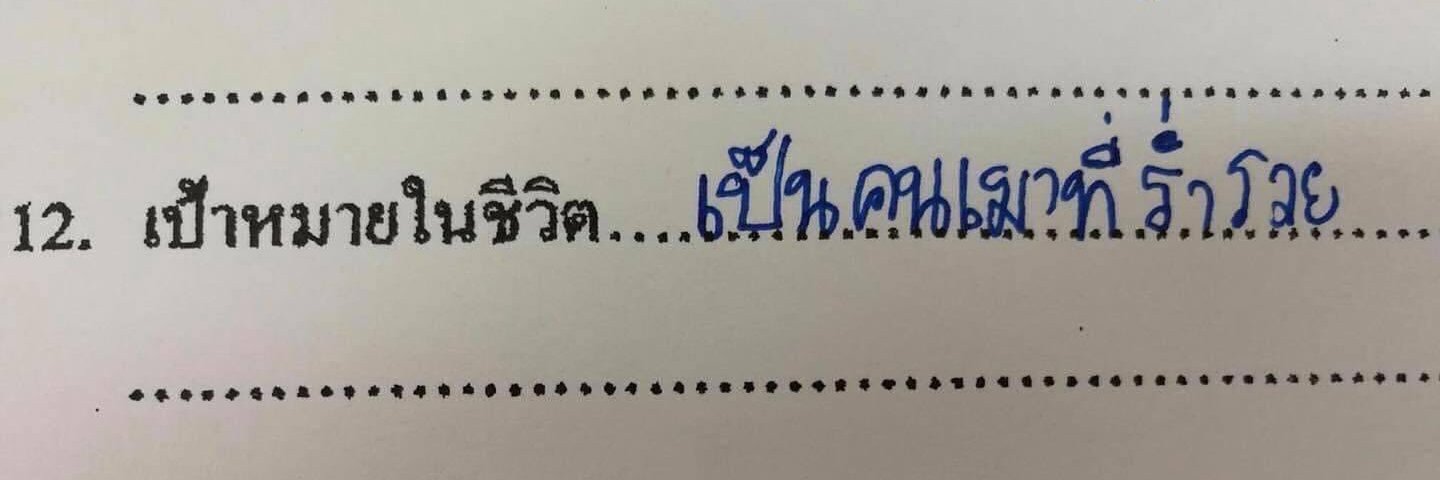 12. เป้าหมายในชีวิต.....เป็นคนเมาที่ร่ำรวย